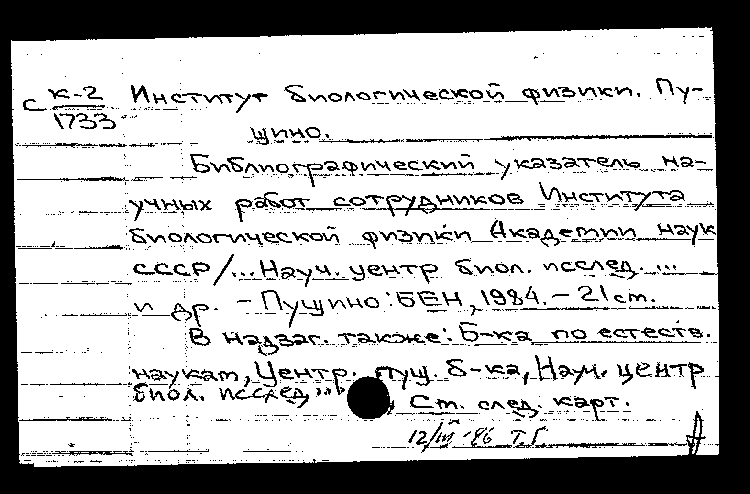 С К-2 Институт биологической физики. Пу-
1733 щино.
Библиографический указатель на-
учных работ сотрудников Института
биологической физики Академии наук
СССР/... Науч. центр биол. исслед. ...
и др. – Пущино: БЕН, 1984. – 21 ст.
В надзаг. также: Б-ка по естеств.
наукам, Центр. пущ. б-ка, Науч. центр
биол. исслед. ...
См. след. карт.
12/III-86 Т.Г.